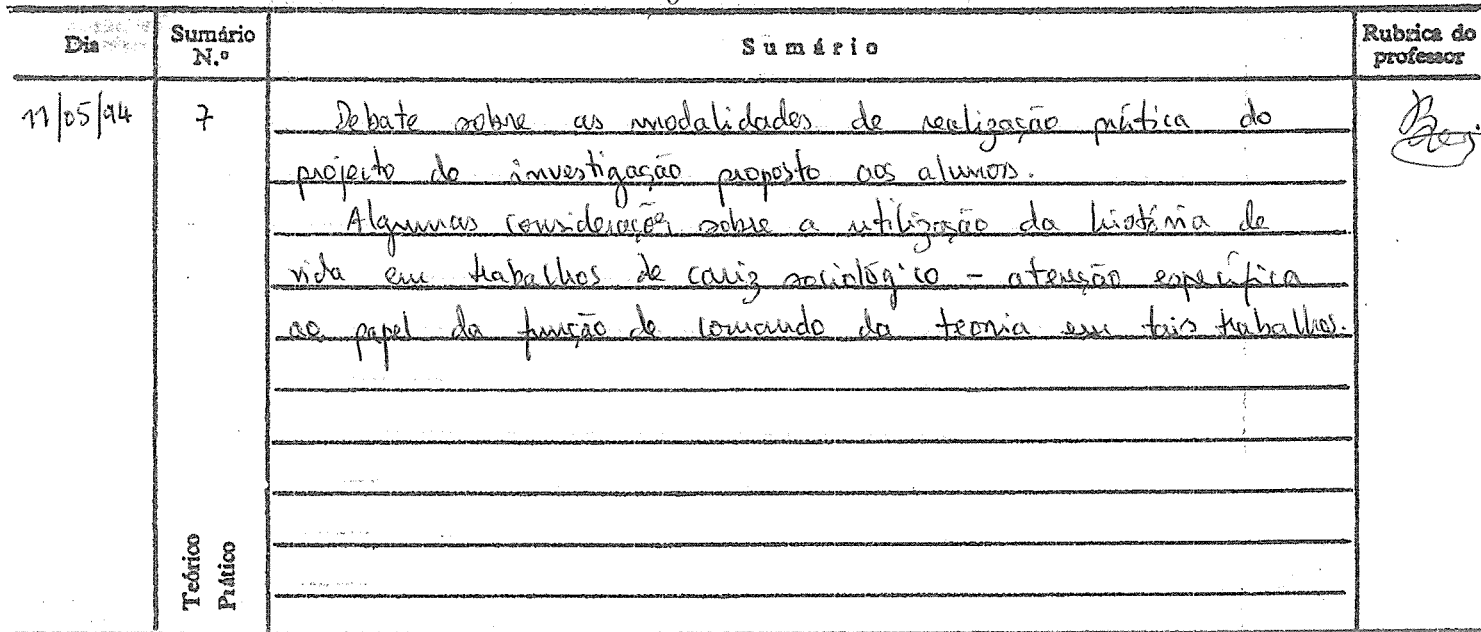 Dia
Sumário N.º
Sumário
Rubrica do professor
11/05/94
7
Debate sobre as modalidades de realização prática do
projecto de investigação proposto aos alunos.
Algumas considerações sobre a utilização da história de
vida em trabalhos de cariz sociológico - atenção específica
ao papel da função de comando da teoria em tais trabalhos.
Teórico
Prático